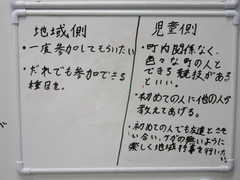 地域側
・一度参加してもらいたい
・だれでも参加できる
種目を。
児童側
・町内関係なく、
色々な町の人と
できる競技があると
いい。
・初めての人に他の人が
教えてあげる。
・初めての人でも友達とさそ
い合い、ケガの無いように
楽しく地域行事を行いたい。